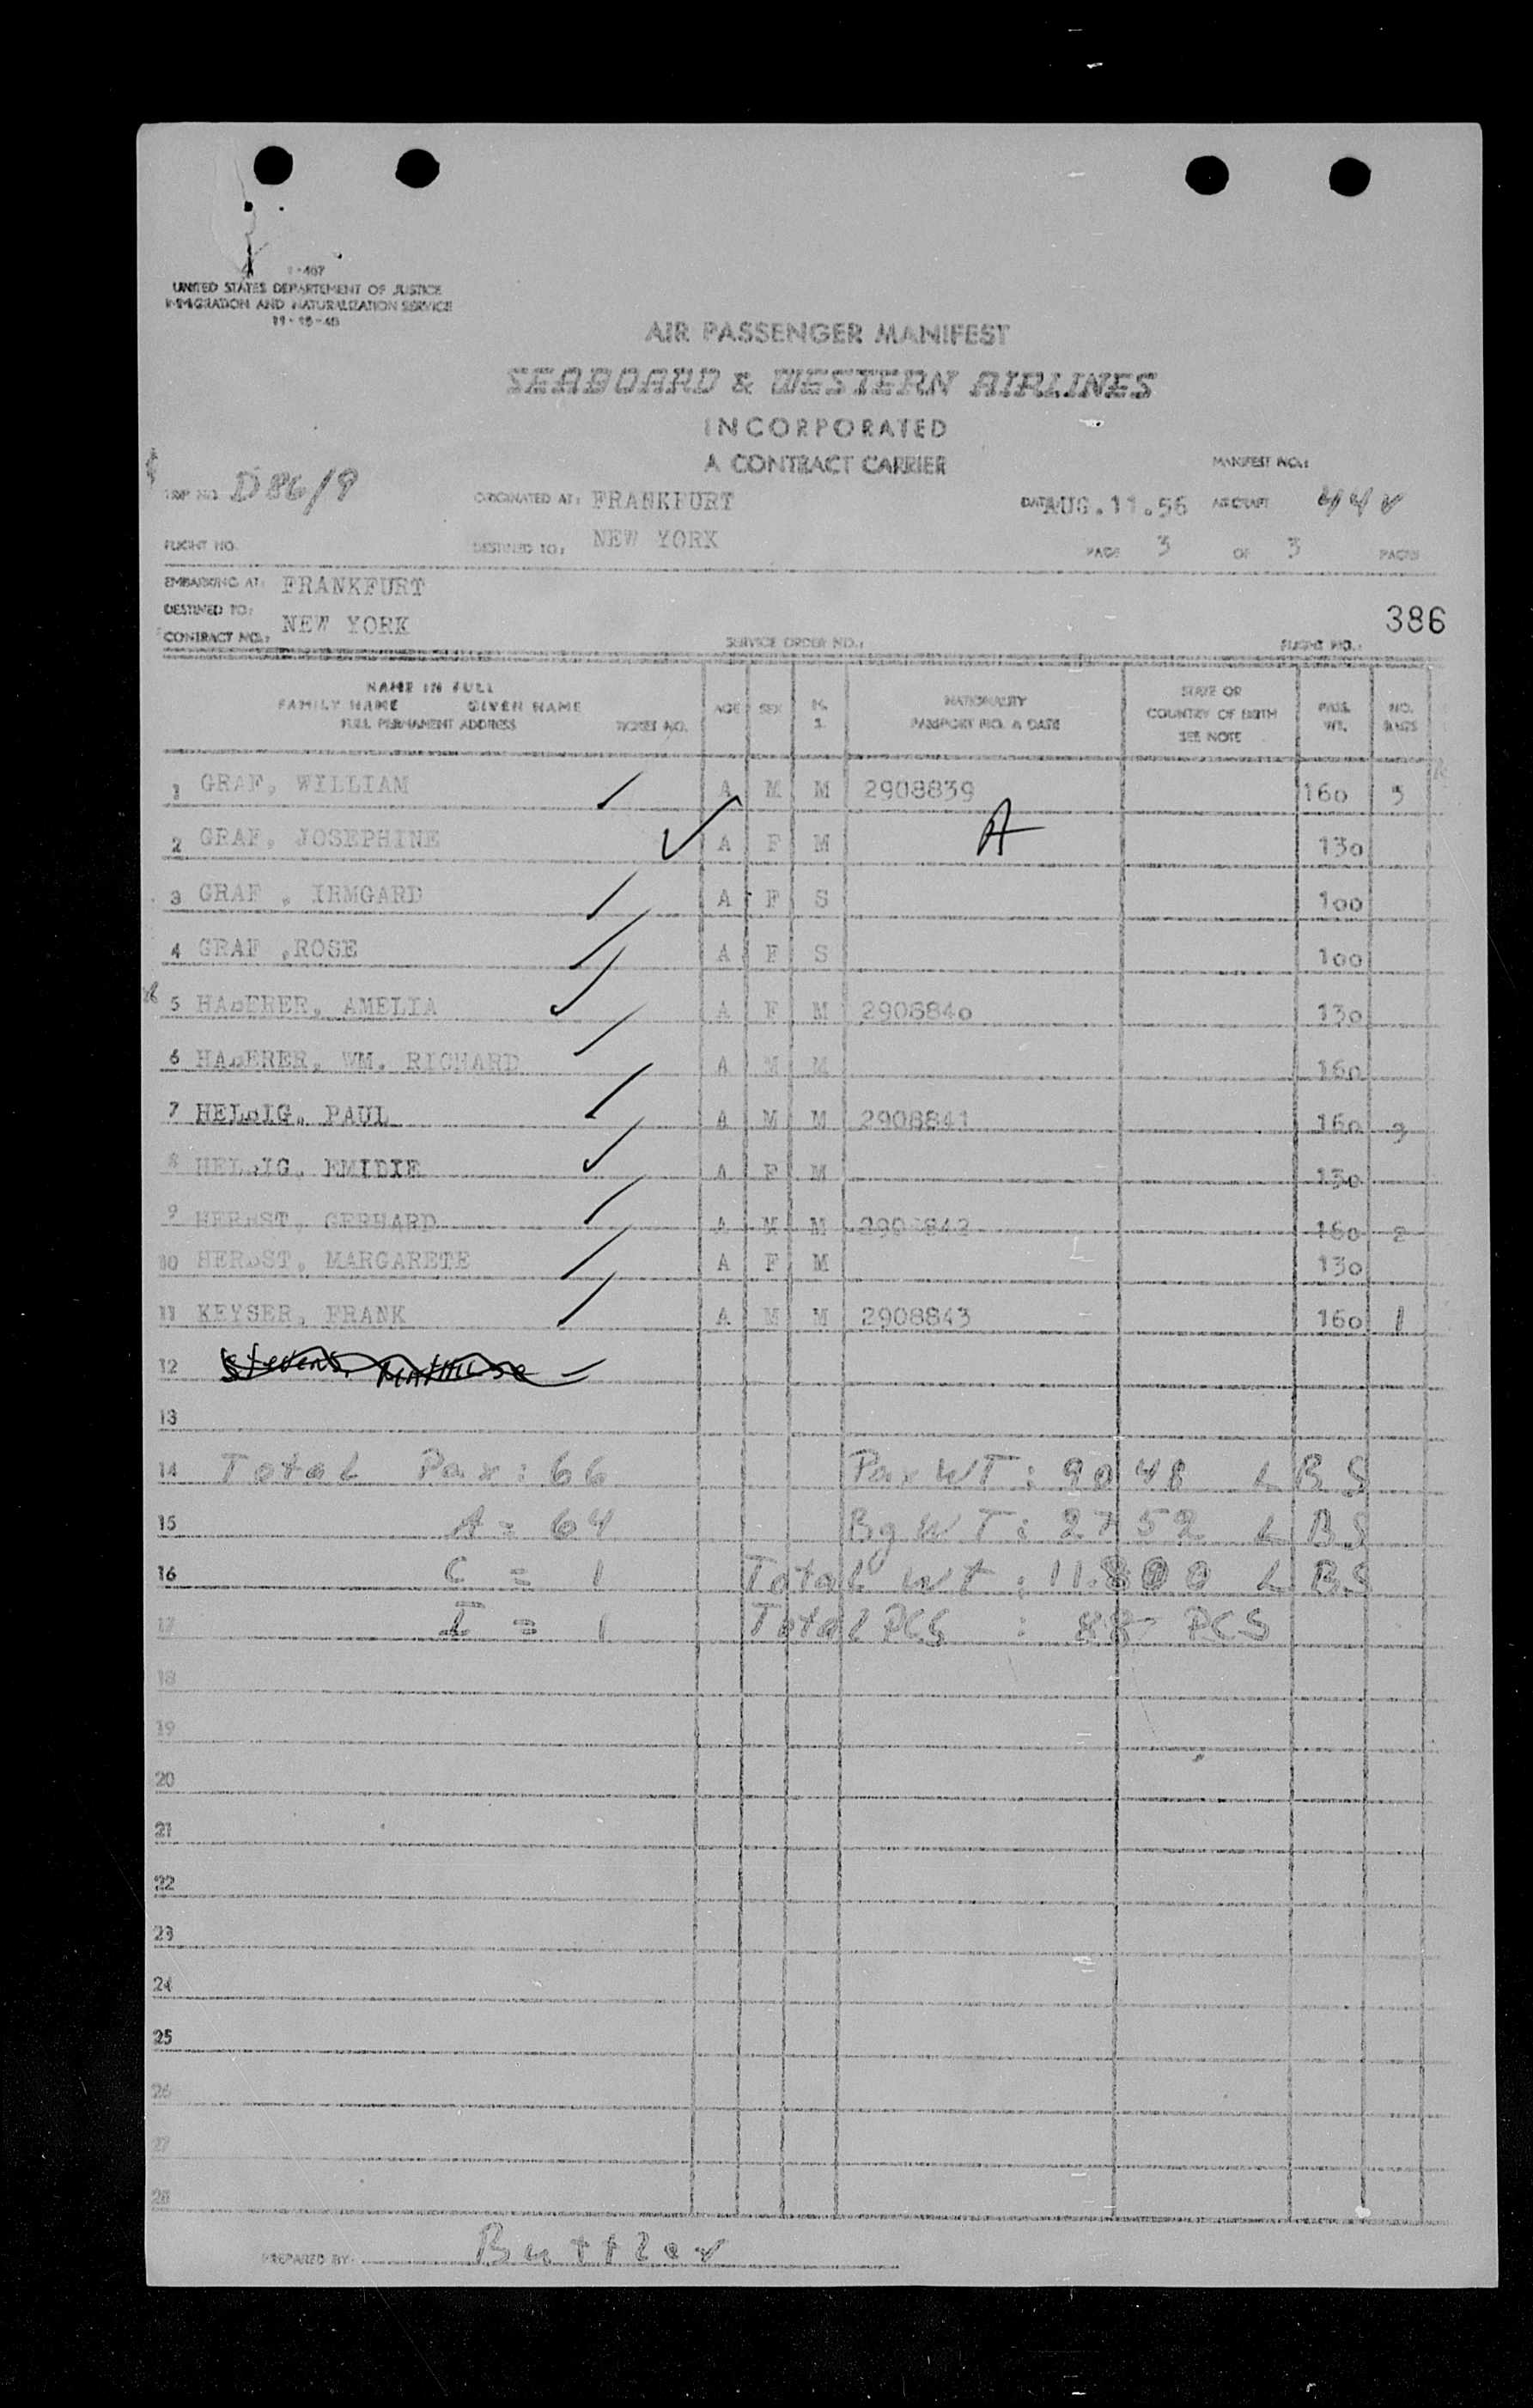 I-407
UNITED STATES DEPARTEMENT OF JUSTICE
IMMIGRATION AND NATURALIZATION SERVICE
AIR PASSENGER MANIFEST
SEABOARD & WESTERN AIRLINES
INCORPORATED
A CONTRACT CARRIER
MANIFEST NO.:
TRIP NO. D86/9 ORIGINATED AT: FRANKFURT DATE AUG.11.56 AIRCRAFT
FLIGHT NO. DESTINED TO: NEW YORK PAGE 3 OF 3 PAGES
EMBARKING AT: FRANKFURT
DESTINED TO: NEW YORK 386
CONTRACT NO.: SERVICE ORDER NO.: FLIGHT NO.:
NAME IN FULL
FAMILY NAME GIVEN NAME
FULL PERMANENT ADDRESS TICKET NO. AGE SEX M. S. NATIONALITY PASSPORT NO. & DATE STATE OR COUNTRY OF BIRTH SEE NOTE PASS. WT. NO. BAGS
1 GRAF, WILLIAM A M M 2908839 160 5
2 GRAF, JOSEPHINE A F M A 130
3 GRAF , IRMGARD A F S 100
4 GRAF ,ROSE A F S 100
5 HABERER, AMELIA A F M 2908840 130
6 HABERER, WM. RICHARD A M M 160
7 HELBIG, PAUL A M M 2908841 160 3
8 HELBIG, EMIDIE A F M 130
9 HERBST, GERHARD A M M 2908842 160 2
10 HERBST, MARGARETE A F M 130
11 KEYSER, FRANK A M M 2908843 160 1
12
13
14 Total Pax: 66 Pax WT: 9048 LBS
15 A = 64 Bg WT: 2752 LBS
16 C = 1 Total Wt: 11.800 LBS
17 I = 1 Total PCS : 88 PCS
18
19
20
21
22
23
24
25
26
27
28
PREPARED BY: Buttler